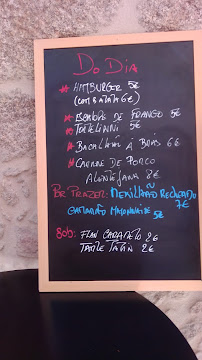 Do Dia
* HAMBURGER 5€
(COM BATATA 6€)
* BIFINHOS DE FRANGO 5€
* TORTELINNI 5€
* BACALHAU À BRÁS 6€
* CARNE DE PORCO
ALENTEJANA 8€
PRAZER: MEXILHÃO RECHEADO
7€
CAMARÃO 5€
Sob: FLAN CARAMELO 2€
TARTE TATIN 2€